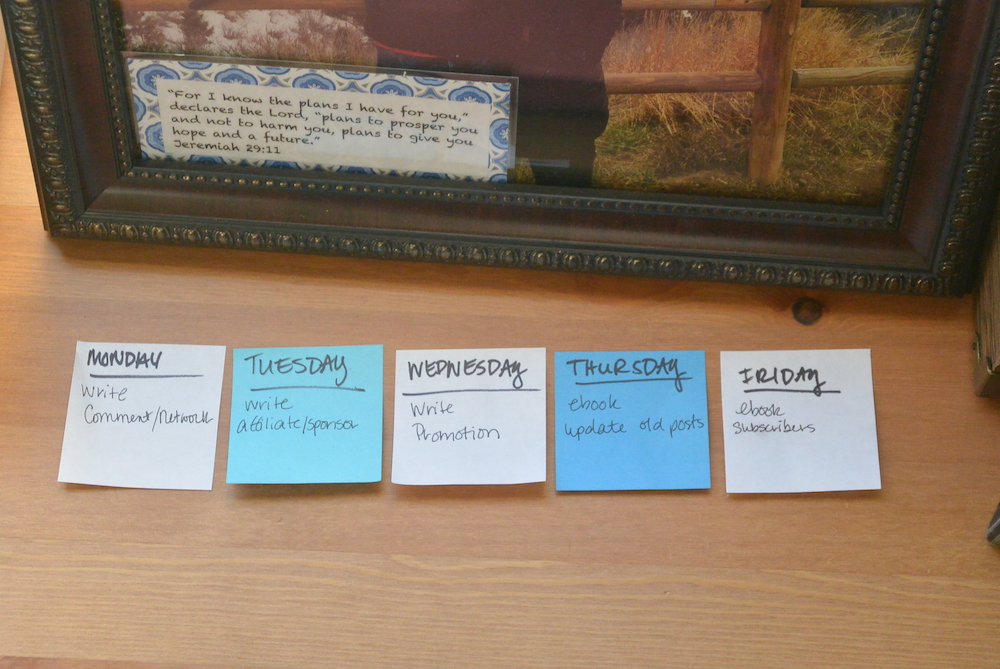 "For I know the plans I have for you,"
declares the Lord, "plans to prosper you
and not to harm you, plans to give you
hope and a future."
Jeremiah 29:11
MONDAY
Write
Comment/network
TUESDAY
write
affiliate/sponsor
WEDNESDAY
Write
Promotion
THURSDAY
ebook
update old posts
FRIDAY
ebook
subscribers